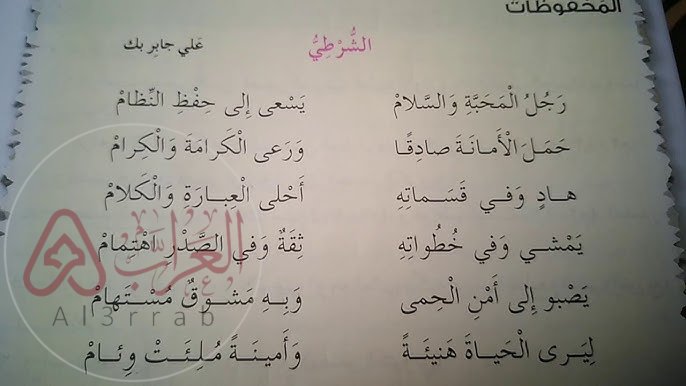 المحفوظات
الشُّرْطِيُّ عَلي جابِر بك
رَجُلُ الْمَحَبَّةِ وَالسَّلامْ يَسْعى إِلى حِفْظِ النِّظامْ
حَمَلَ الْأَمانَةَ صادِقًا وَرَعى الْكَرامَةَ وَالْكِرامْ
هادٍ وَفي قَسَماتِهِ أَحْلى الْعِبارَةِ وَالْكَلامْ
يَمْشي وَفي خُطُواتِهِ ثِقَةٌ وَفي الصَّدْرِ اهْتِمامْ
يَصْبو إِلى أَمْنِ الْحِمى وَبِهِ مَشوقٌ مُسْتَهامْ
لِيَرى الْحَياةَ هَنيئَةً وَأَمينَةً مُلِئَتْ وِئامْ
العراب
Al3rrab